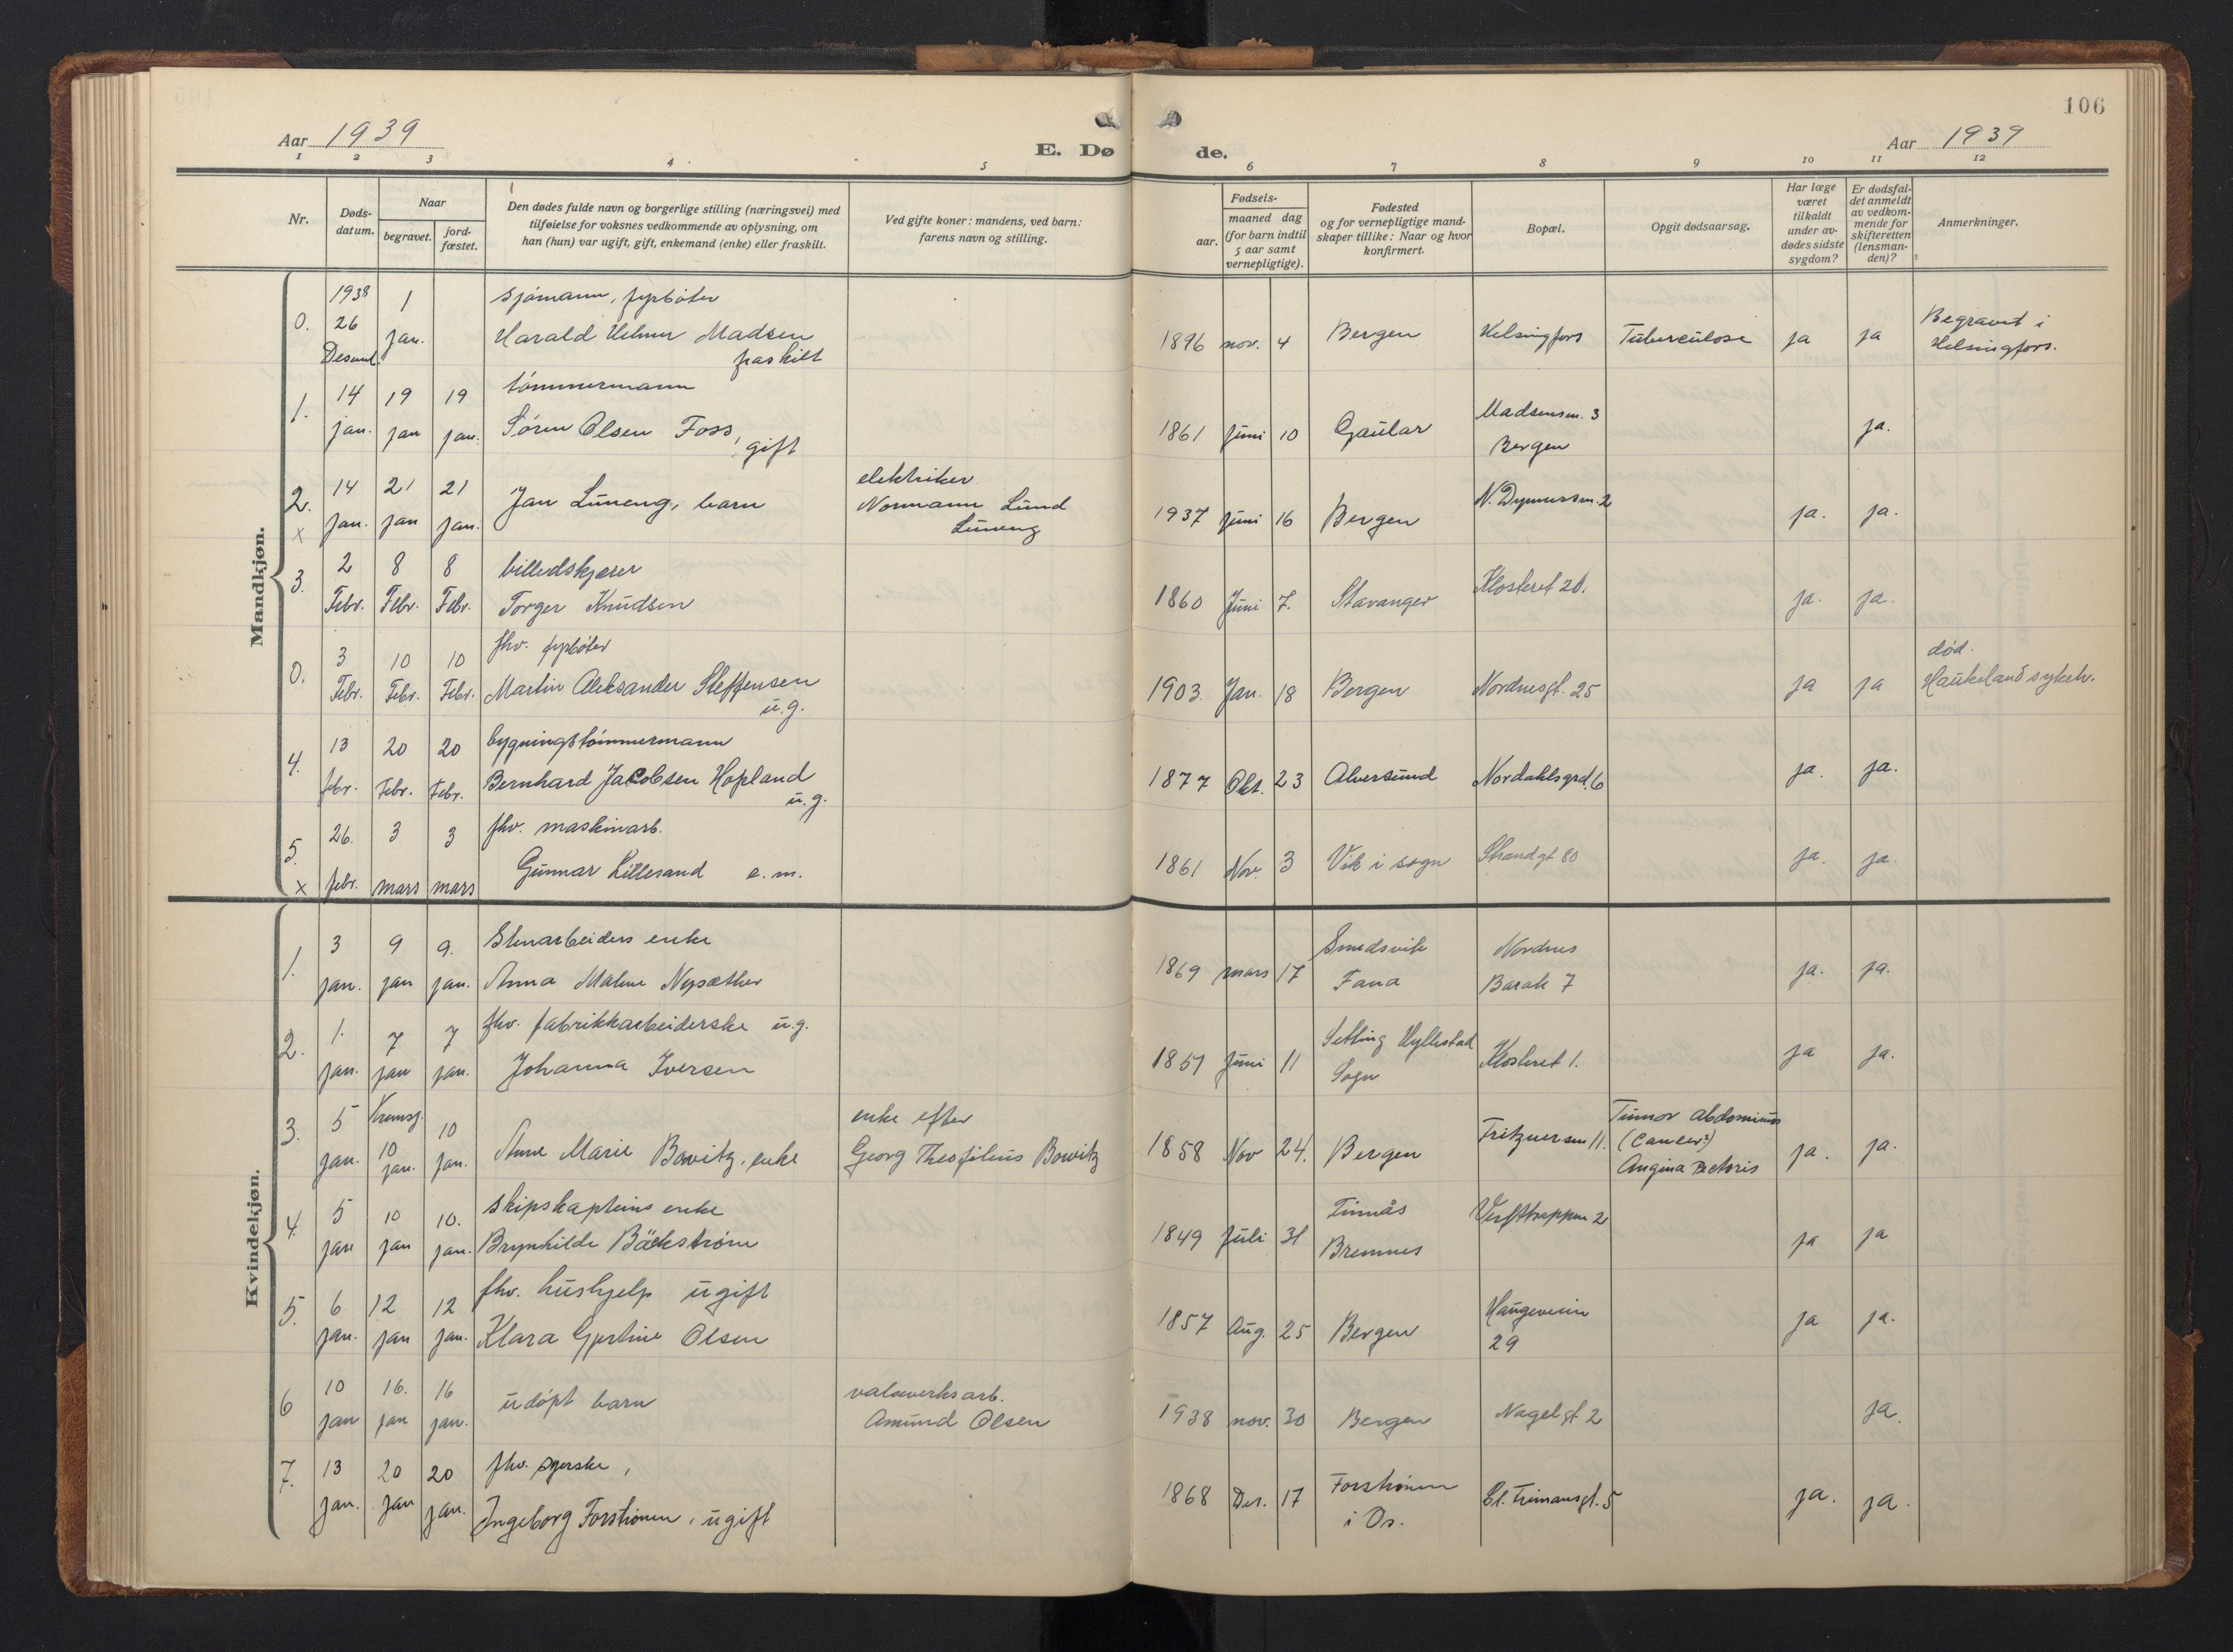 106
Aar 1939
E. Dø
de.
Aar 1939
1 2 3 4 5 6 7 8 9 10 11 12
Nr.
Døds-
datum.
Naar
begravet.
jord-
fæstet.
Den dødes fulde navn og borgerlige stilling (næringsvei) med
tilføielse for voksnes vedkommende av oplysning, om
han (hun) var ugift, gift, enkemand (enke) eller fraskilt.
Ved gifte koner: mandens, ved barn:
farens navn og stilling.
Fødsels-
aar.
maaned dag
(for barn indtil
5 aar samt
vernepligtige).
Fødested
og for vernepligtige mand-
skaper tillike: Naar og hvor
konfirmert.
Bopæl.
Opgit dødsaarsag.
Har læge
været
tilkaldt
under av-
dødes sidste
sygdom?
Er dødsfal-
det anmeldt
av vedkom-
mende for
skifteretten
(lensman-
den)?
Anmerkninger.
Mandkjøn.
1938 1 sjømann, fyrbøter
0. 26 jan. Harald Helmer Madsen 1896 nov. 4 Bergen Helsingfors Tuberculose ja ja Begravet i
Desemb. fraskilt Helsingfors.
14 19 19 tømmermann Madsensm. 3
1. jan. jan jan. Sören Olsen Foss, 1861 juni 10 Gaular Bergen ja.
gift
14 21 21 elektriker
2. jan. jan jan. Jan Luneng, barn Normann Lund 1937 juni 16 Bergen N. Dynnersm. 2 ja. ja.
x Luneng
2 8 8 billedskjærer
3. Febr. Febr. Febr. Torger Knudsen 1860 Juni 7. Stavanger Klosteret 20. ja. ja.
3 10 10 fhv. fyrbøter død.
0. Febr. Febr. Febr. Martin Aleksander Steffensen 1903. Jan. 18 Bergen Nordnesgt. 25 ja ja Haukeland sykeh.
u.g.
13 20 20 bygningstømmermann
4. febr. Febr. Febr. Bernhard Jacobsen Hopland 1877 Okt. 23 Alversund Nordahlsgrd. 6 ja. ja.
u.g.
26. 3 3 fhv. maskinarb.
5. febr. mars mars Gunnar Lillesand e.m. 1861 Nov. 3 Vik i sogn Strandgt 80 ja. ja.
x
Kvindekjøn.
3 9 9. Stenarbeiders enke Smedsvik Nordnes
1. jan. jan jan. Anna Malene Nysæther 1869 mars 17 Fana Barak 7 ja. ja.
1. 7 7 fhv. fabrikkarbeiderske u.g. Hyllestad
2. jan. jan jan. Johanna Iversen 1851 juni 11 Sogn Klosteret 1. ja ja.
5 Kremsj. 10 enke efter Tumor abdominis
3. jan. 10 jan. jan. Anne Marie Bowitz, enke Georg Theofilius Bowitz 1858 Nov 24. Bergen Fritznersm 11. (Cancer?) ja. ja.
Angina Pectoris
5 10 10. skipskapteins enke Finnås
4. jan jan jan. Brynhilde Bäckstrøm 1849 Juli 31 Bremnes Verfttrappen 2 ja ja
6 12 12 fhv. hushjelp ugift Haugeveien
5. jan. jan jan. Klara Gjertine Olsen 1857 Aug. 25 Bergen 29 ja ja.
10 16. 16 valseverksarb.
6 jan jan jan. udøpt barn Amund Olsen 1938 nov. 30 Bergen Nagelgt 2 ja.
13 20 20 fhv. syerske, Forstrønen
7. jan. jan jan. Ingeborg Forstrønen, ugift 1868 Des. 17 i Os. 5 ja. ja.